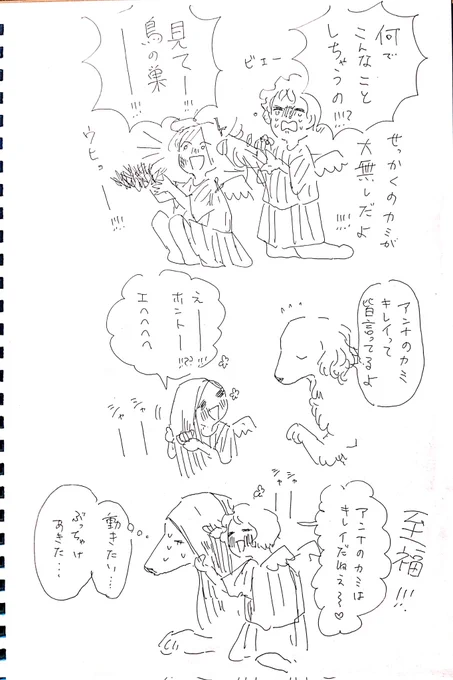 何で
こんなこと
しちゃうの!!?
ビェー
せっかくのカミが
大無しだよ
!!!
見てー!!!
鳥の巣
ーー!!!
ウヒョーー!!!
アンナのカミ
キレイって
皆言ってるよ
えーー
ホントーー!!??!!!
エヘヘヘヘ
シャーー
シャーー
至福!!!
アンナのカミは
キレイだねえ〜♡
シャーー
シャーー
動きたい…
ぶっちゃけ
あきた…